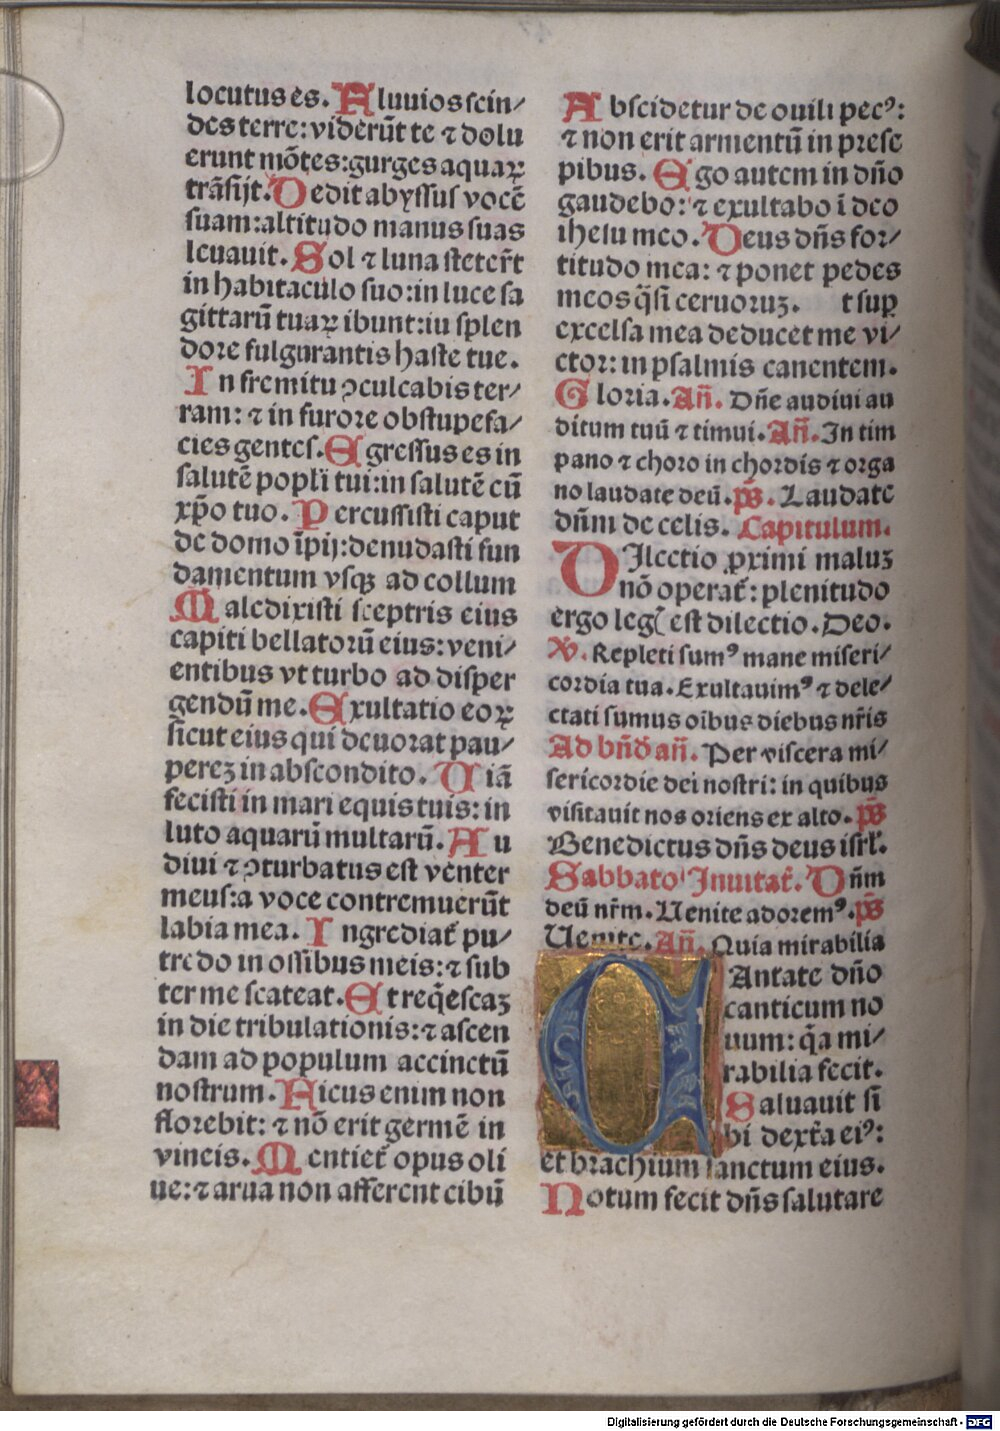 locutus es. Fluuios scin/
des terre: viderūt te ⁊ dolu
erunt mōtes: gurges aquaꝝ
trāsijt. Dedit abyssus vocē
suam: altitudo manus suas
leuauit. Sol ⁊ luna stetert̄
in habitaculo suo: in luce sa
gittarū tuaꝝ ibunt: iu splen
dore fulgurantis haste tue.
In fremitu ꝯculcabis ter/
ram: ⁊ in furore obstupefa/
cies gentes. Egressus es in
salutē popl̄i tui: in salutē cū
xp̄o tuo. Percussisti caput
de domo īpij: denudasti fun
damentum vsqꝫ ad collum
Maledixisti sceptris eius
capiti bellatorū eius: veni/
entibus vt turbo ad disper
gendū me. Exultatio eoꝝ
sicut eius qui deuorat pau/
perez in abscondito. Uiā
fecisti in mari equis tuis: in
luto aquarū multarū. Au
diui ⁊ ꝯturbatus est venter
meus: a voce contremuerūt
labia mea. Ingrediat᷑ pu/
tredo in ossibus meis: ⁊ sub
ter me scateat. Et req̄escaz
in die tribulationis: ⁊ ascen
dam ad populum accinctū
nostrum. Ficus enim non
florebit: ⁊ nō erit germē in
vineis. Mentiet᷑ opus oli
ue: ⁊ arua non afferent cibū
Abscidetur de ouili pecꝰ:
⁊ non erit armentū in prese
pibus. Ego autem in dn̄o
gaudebo: ⁊ exultabo ī deo
ihesu meo. Deus dn̄s for/
titudo mea: ⁊ ponet pedes
meos q̄si ceruoruz. t suꝑ
excelsa mea deducet me vi/
ctor: in psalmis canentem.
Gloria. Añ. Dn̄e audiui au
ditum tuū ⁊ timui. Añ. In tim
pano ⁊ choro in chordis ⁊ orga
no laudate deū. p̄s. Laudate
dn̄m de celis. Capitulum.
DIlectio ꝓximi maluz
nō operat᷑: plenitudo
ergo legꝭ est dilectio. Deo.
℣. Repleti sumꝰ mane miseri/
cordia tua. Exultauimꝰ ⁊ dele/
ctati sumus oībus diebus nr̄is
Ad bn̄d̄ añ. Per viscera mi/
sericordie dei nostri: in quibus
visitauit nos oriens ex alto. p̄s
Benedictus dn̄s deus isrl̄.
Sabbato Inuitat᷑. Dn̄m
deū nr̄m. Uenite adoremꝰ. p̄s
Uenite. Añ. Quia mirabilia
CAntate dn̄o
canticum no
uum: q̄a mi/
rabilia fecit.
Saluauit si
bi dext̄a eiꝰ:
et brachium sanctum eius.
Notum fecit dn̄s salutare
Digitalisierung gefördert durch die Deutsche Forschungsgemeinschaft - DFG